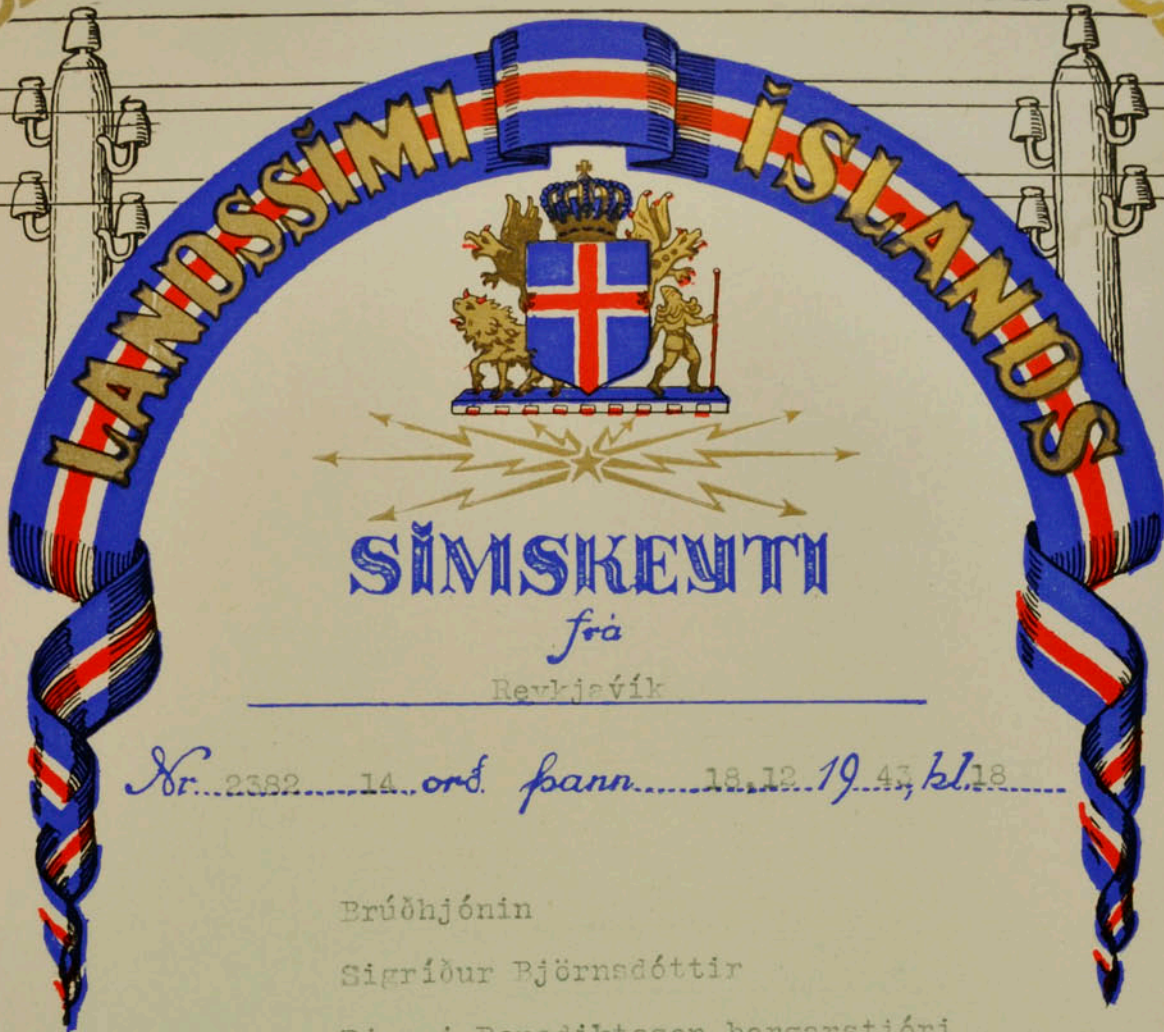 LANDSSÍMI ÍSLANDS
SÍMSKEYTI
frá
Reykjavík
Nr. 2382 14 orð þann 18.12 19 43, kl. 18
Brúðhjónin
Sigríður Björnsdóttir
Bjarni Benediktsson borgarstjóri